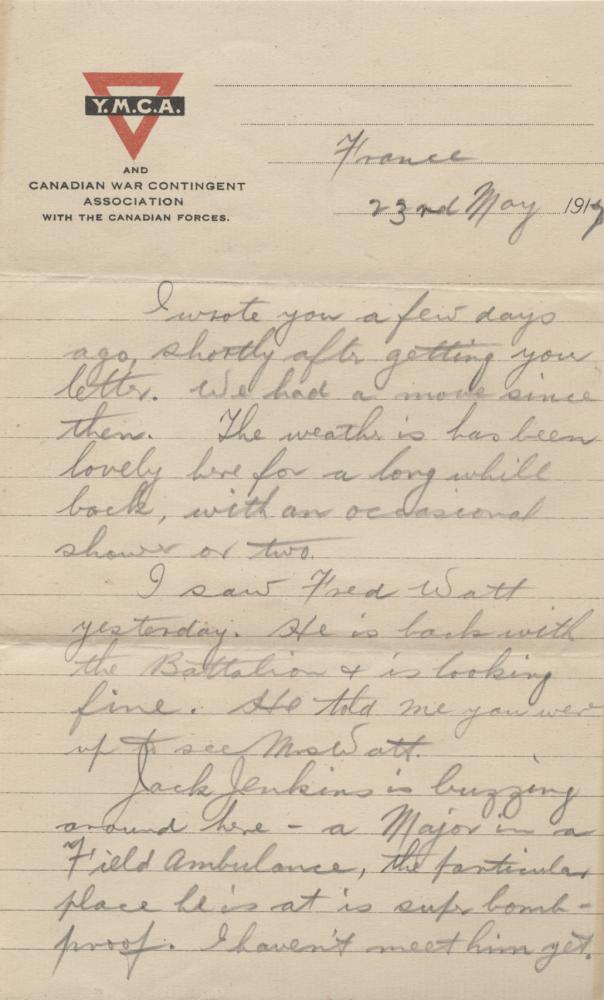 Y.M.C.A.
AND
CANADIAN WAR CONTINGENT
ASSOCIATION
WITH THE CANADIAN FORCES.
France
23rd May 1917
I wrote you a few days
ago, shortly after getting your
letter. We had a move since
then. The weather is has been
lovely here for a long while
back, with an occasional
shower or two.
I saw Fred Watt
yesterday. He is back with
the Battalion & is looking
fine. He told me you were
up to see Mrs Watt.
Jack Jenkins is buzzing
around here - a Major in a
Field Ambulance, the particular
place he is at is super bomb-
proof. I haven't meet him yet.